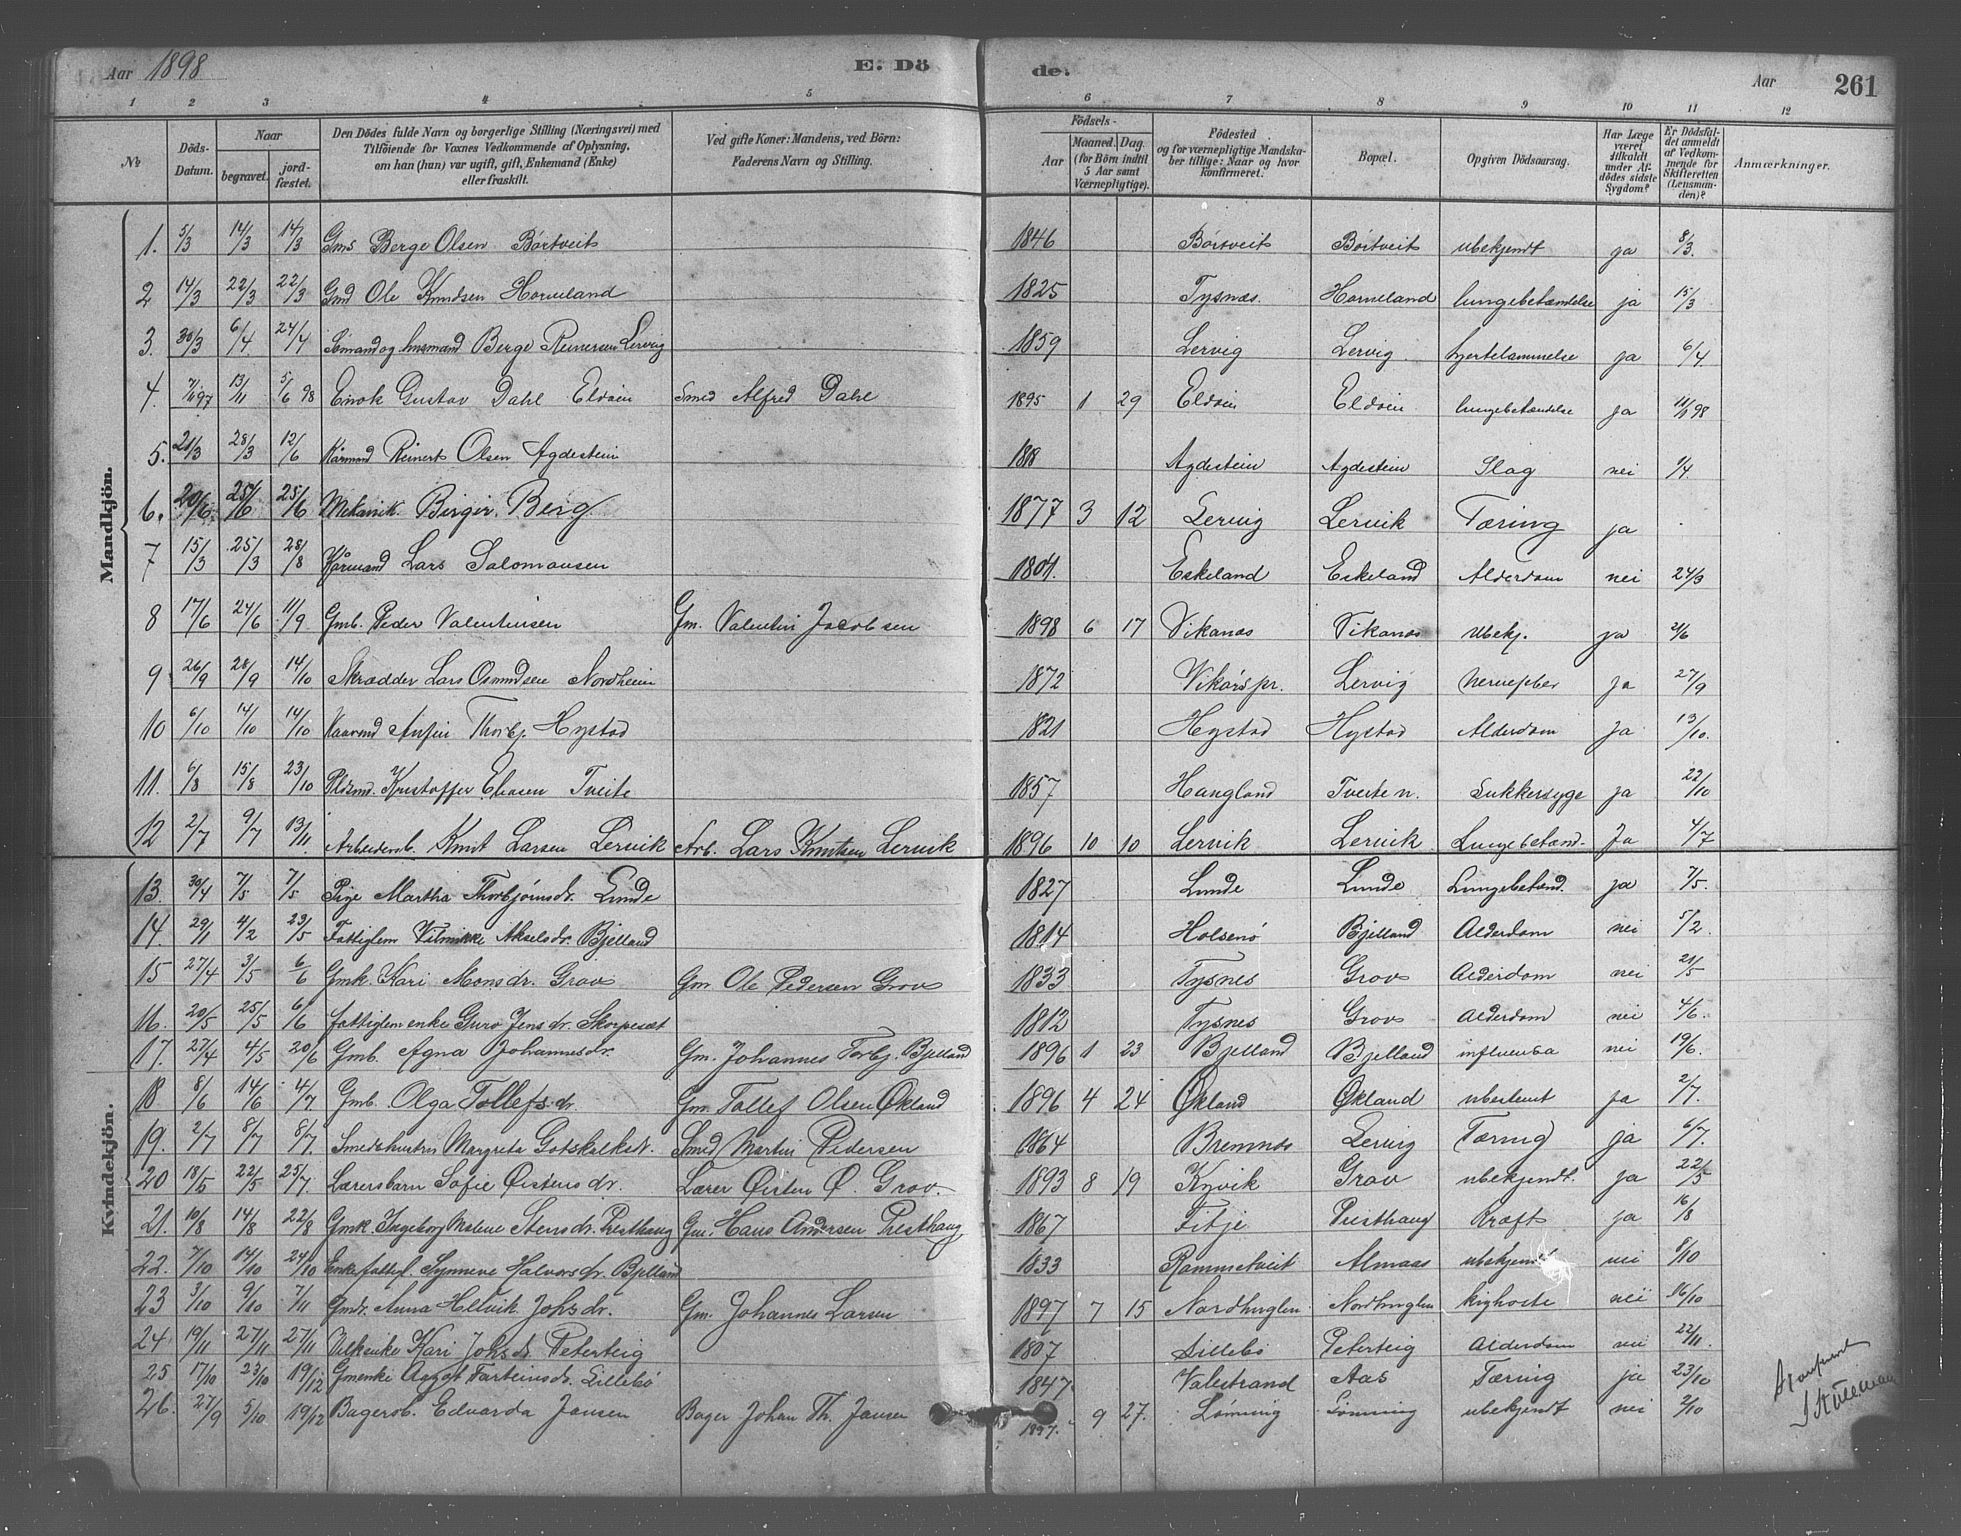 Aar 1898 E. Dö de. Aar 261
1 2 3 4 5 6 7 8 9 10 11 12
№ Döds-Datum. Naar begravet. jordfæstet. Den Dödes fulde Navn og borgerlige Stilling (Næringsvei) med Tilföiende for Voxnes Vedkommende af Oplysning, om han (hun) var ugift, gift, Enkemand (Enke) eller fraskilt. Ved gifte Koner: Mandens, ved Börn: Faderens Navn og Stilling. Födsels- Aar Maaned. Dag. (for Börn indtil 5 Aar samt Værnepligtige). Födested og for værnepligtige Mandskaber tillige: Naar og hvor konfirmeret. Bopæl. Opgiven Dödsaarsag. Har Læge været tilkaldt under Afdödes sidste Sygdom? Er Dödsfaldet anmeldt af Vedkommende for Skifteretten (Lensmanden)? Anmærkninger.
Mandkjön.
1. 5/3 14/3 14/3 Gms Berge Olsen Börtveit 1846 Börtveit Börtveit ubekjendt ja 8/3.
2 14/3 22/3 22/3 Gmd Ole Knudsen Horneland 1825 Tysnæs. Horneland lungebetændelse ja 15/3
3. 30/3 6/4 24/4 Sömand og husmand Berge Reinersen Lervig 1859 Lervig Lervig. hjertelammelse ja 6/4
4. 13/11 5/6 98 Enok Gustav Dahl Eldöin Smed Alfred Dahl 1895 1 29 Eldöin Eldöin lungebetændelse ja 11/1 98
5. 21/3 28/3 12/6 Kårmand Reinert Olsen Agdestein 1818 Agdestein Agdestein Slag nei
6. 20/6 25/6 25/6 Mekanik. Birger Berg 1877 3 12 Lervig Lervik Tæring ja
7 15/3 25/3 28/8 Kårmand Lars Salomonsen 1804. Eskeland Eskeland Alderdom nei 24/3
8 17/6 24/6 11/9 Gmb. Peder Valentinsen Gm. Valentin Jacobsen 1898 6 17 Vikanæs Vikanæs Ubekj. ja
9 26/9 28/9 14/10 Skrædder Lars Osmundsen Nordheim 1872 Vikörs pr. Lervig ja 27/9
10 6/10 14/10 14/10 Kaarmd Anfin Thorbj. Hystad 1821 Hystad Hystad Alderdom ja 13/10.
11. 6/8 15/8 23/10 Kristoffer Eliasen Tveite 1857 Haugland Tveite n. Sukkersyge ja 22/10
12 2/7 9/7 13/11 Arbeidersb. Knut Larsen Lervik Arb. Lars Knutsen Lervik 1896 10 10 Lervik Lervik Lungebetænd. Ja 4/7
Kvindekjön.
13. 30/4 7/5 7/5 Pige Martha Thorbjörnsdr. Lunde 1827 Lunde Lunde Lungebetænd. ja 7/5.
14. 29/1 4/2 23/5 Fattiglem Vilmikke Akselsdr. Bjelland 1814 Holsenö Bjelland Alderdom nei 5/2.
15 27/4 3/5 6/6 Gmk. Kari Monsdr. Grov Gm. Ole Pedersen Grov 1833 Tysnes Grov Alderdom nei 21/5
16. 20/5 25/5 6/6 fattiglem enke Guro Jensdr. Skorpesæt 1812 Tysnes Grov Alderdom nei 4/6.
17. 27/4 4/5 20/6 Gmb. Agna Johannesdr. Gm. Johannes Torbj. Bjelland 1896 1 23 Bjelland Bjelland influensa nei 19/6.
18 8/6 14/6 4/7 Gmb. Olga Tollefsdr Gm. Tollef Olsen Økland 1896 4 24 Økland Økland ubestemt ja 2/7.
19. 2/7 8/7 8/7. Smedshustru Margreta Gotskalksdr. Smed Martin Pedersen 1864 Bremnes Lervig Tæring ja 6/7.
20 18/5 22/5 25/7. Lærersbarn Sofie Öistensdr. Lærer Öisten Ö. Grov. 1893 8 19 Kyvik Grov ubekjendt. ja 22/5
21. 10/8 14/8 22/8 Gmk. Ingeborg Malene Stensdr. Presthaug Gm. Hans Andersen Presthaug 1867 Fitje Presthaug Kræft ja 16/8
22. 7/10 14/10 24/10 Enke fattigl. Synneve Halvorsdr. Bjelland 1833 Rammetveit Almaas ubekjendt nei 8/10
23 3/10 9/10 7/11 Anna Helvik Johsdr. Gm. Johannes Larsen 1897 7 15 Nordhuglen Nordhuglen kighoste nei 16/10
24 19/11 27/11 27/11 Kari Johsdr Peterteig 1807 Lillebö Peterteig Alderdom nei 22/11.
25 17/10 23/10 19/12 Gmenke Aagot Farteinsdr. Lillebö 1847 Valestrand Aas Tæring ja 23/10
26. 27/9 5/10 19/12 Bagerb. Edvarda Jansen Bager Johan Th. Jansen 1897. 9 27. Lönning Lönning ubekjendt nei 2/10